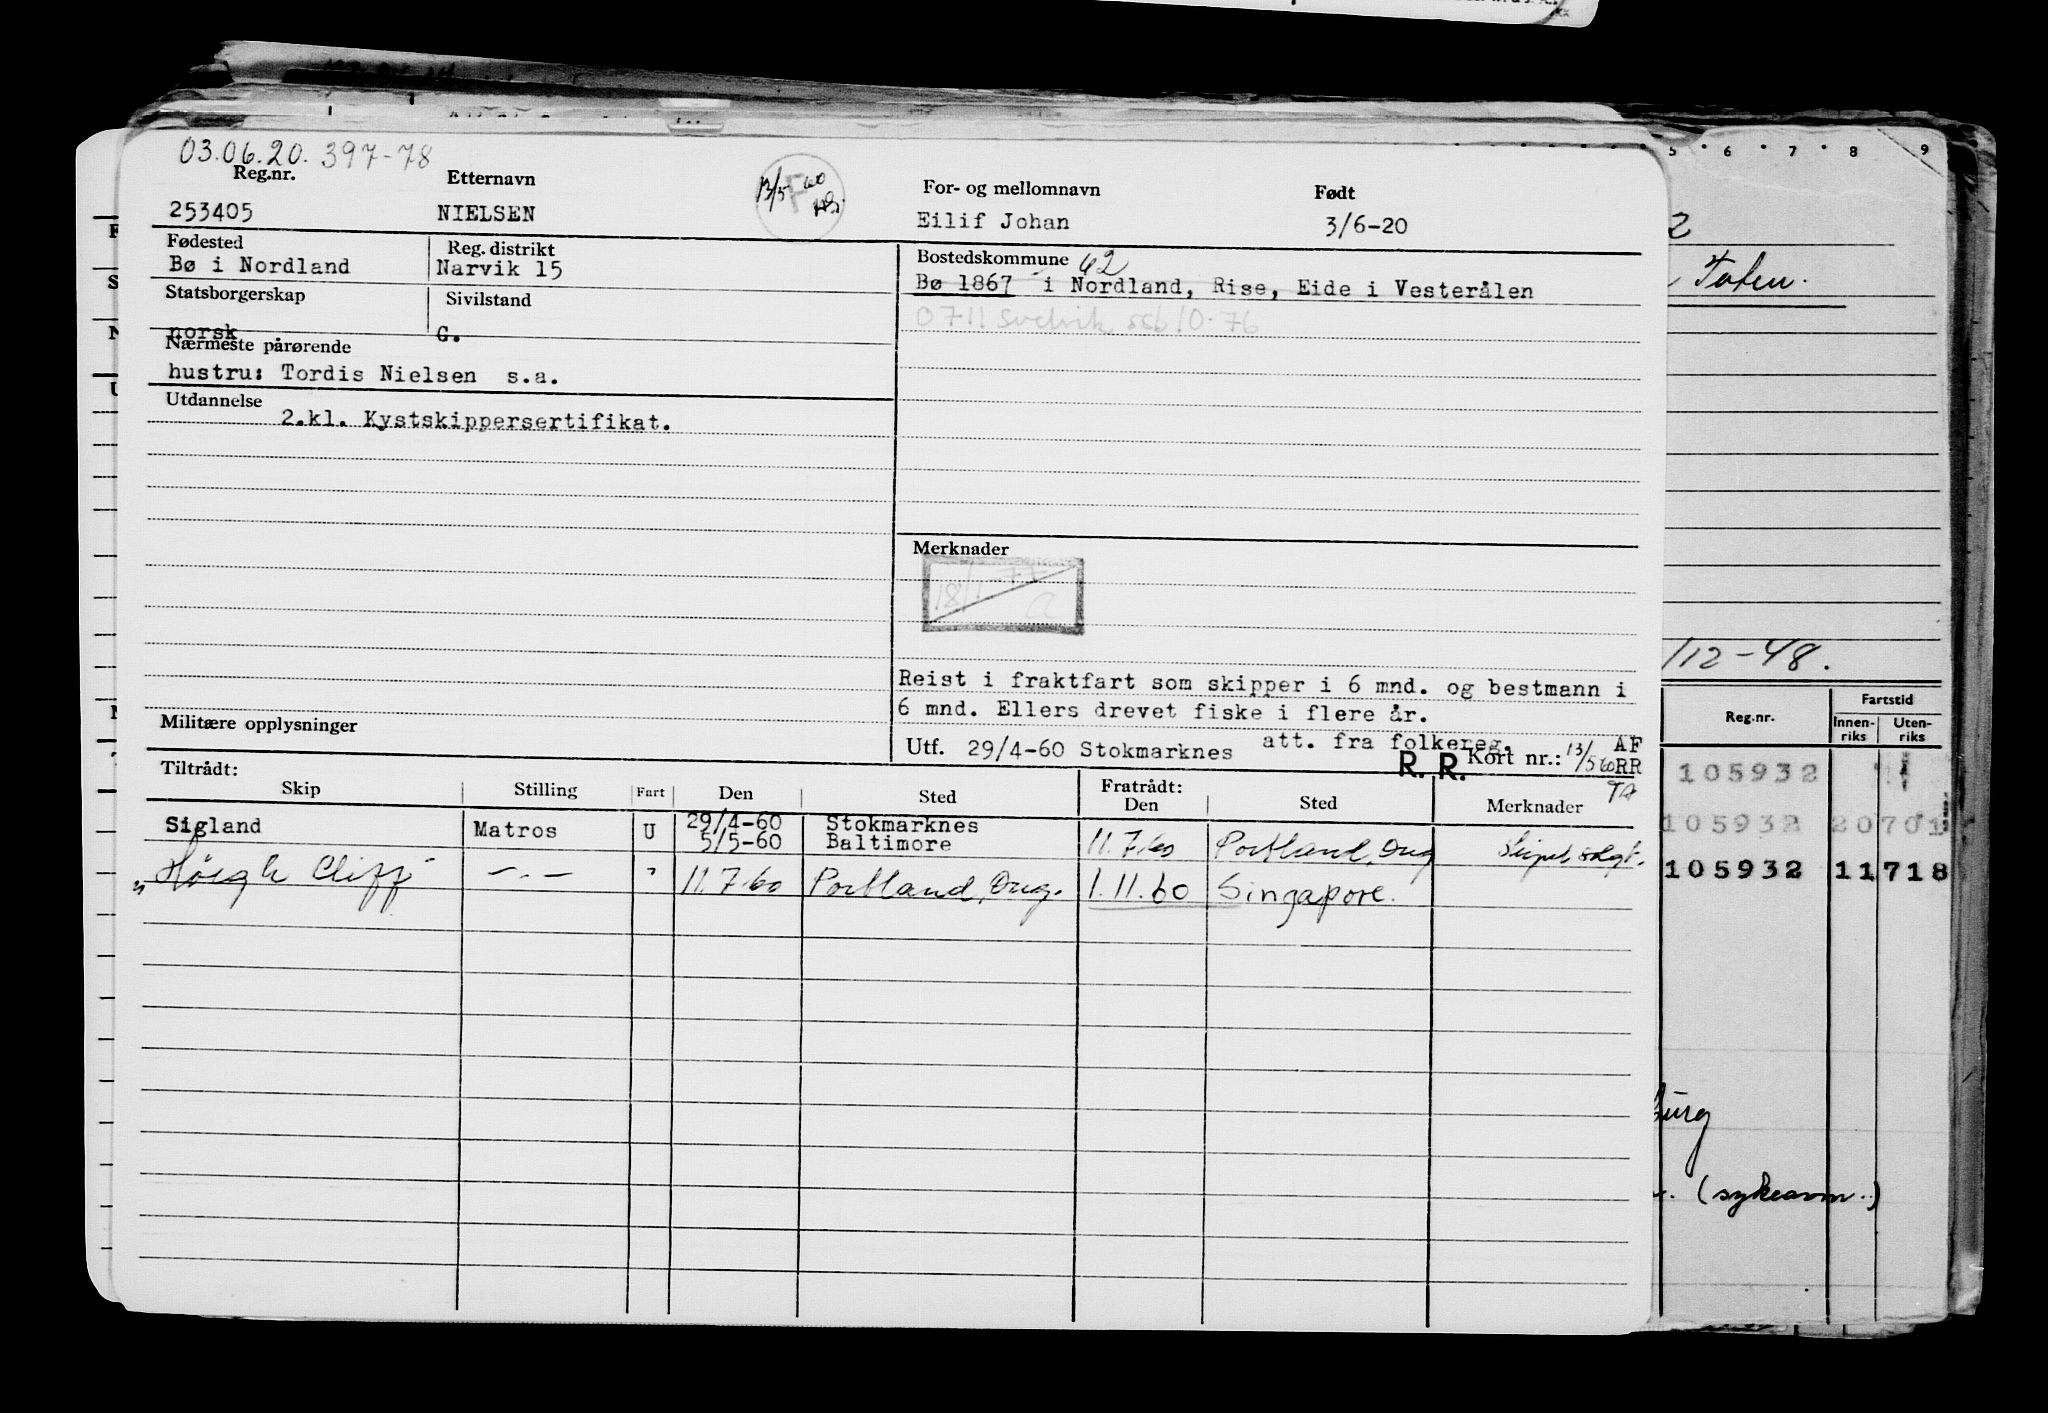 03.06.20. 397-78
Reg.nr. Etternavn For- og mellomnavn Født
13/5 60
253405 NIELSEN Eilif Johan 3/6-20
Fødested Reg. distrikt Bostedskommune 62
Bø i Nordland Narvik 15 Bø 1867 i Nordland, Rise, Eide i Vesterålen
Statsborgerskap Sivilstand
0711 Svelvik ssb 10-76
norsk G.
Nærmeste pårørende
hustru: Tordis Nielsen s.a.
Utdannelse
2.kl. Kystskippersertifikat.
Merknader
18/1-77
a
Reist i fraktfart som skipper i 6 mnd. og bestmann i
6 mnd. Ellers drevet fiske i flere år.
Militære opplysninger
Utf. 29/4-60 Stokmarknes att. fra folkereg. AF
R. R. Kort nr.: 13/5 60 RR
TA
Tiltrådt: Fratrådt:
Skip Stilling Fart Den Sted Den Sted Merknader
Sigland Matros U 29/4-60 Stokmarknes 11.7.60 Portland, Oreg Skipet solgt.
5/5-60 Baltimore
" Höegh Cliff -"- " 11.7.60 Portland, Oreg. 1.11.60 Singapore.
5 6 7 8 9
2
Toten.
/12-48.
Reg.nr. Fartstid
Innen-riks Uten-riks
105932
105932 20701
105932 11718
burg
(sykeavm.)